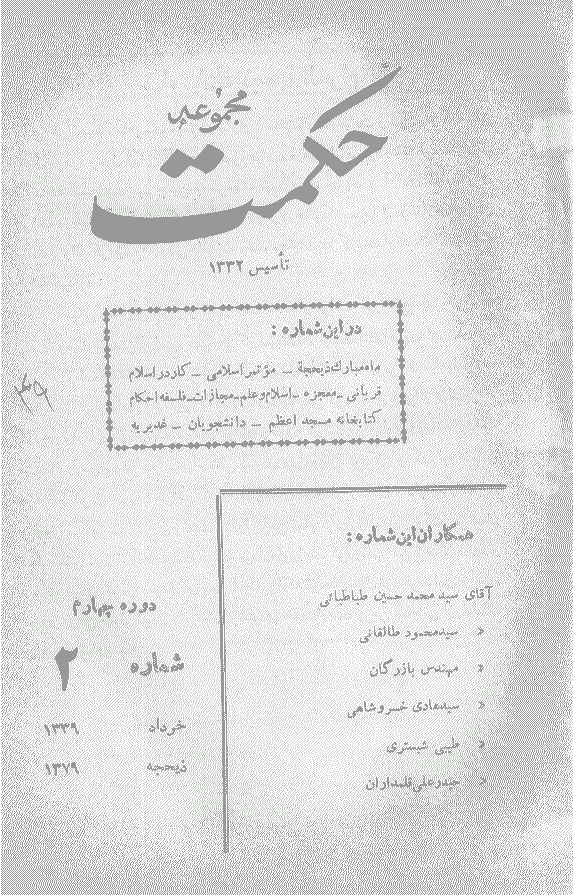 مجموعه
حکمت
تأسیس ۱۳۳۲
در این شماره :
ماه مبارك ذیحجة – مؤتمر اسلامی – کار در اسلام
قربانی – معجزه – اسلام و علم – مجازات – فلسفه احکام
کتابخانه مسجد اعظم – دانشجویان – غدیریه
همکاران این شماره :
آقای سید محمد حسین طباطبائی
» سید محمود طالقانی
» مهندس بازرگان
» سید هادی خسروشاهی
» طیبی شبستری
» حیدر علی قلمداران
دوره چهارم
شماره ۲
خرداد ۱۳۳۹
ذیحجه ۱۳۷۹